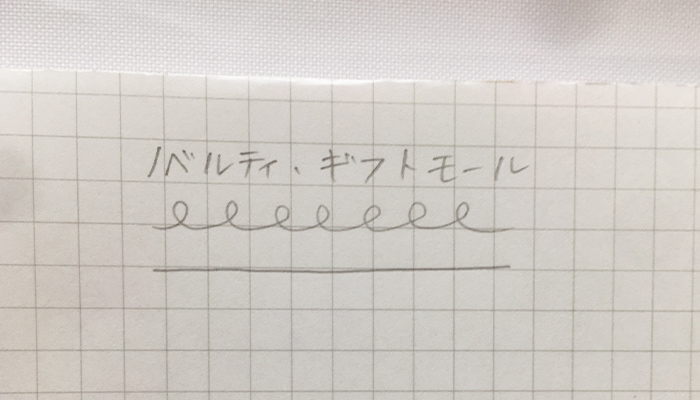 ノベルティ、ギフトモール